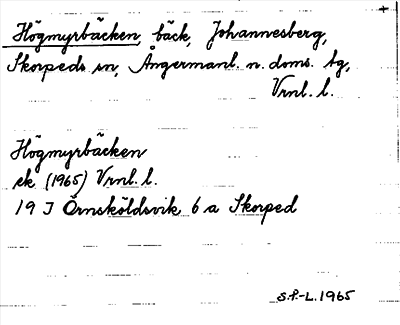 Högmyrbäcken, bäck, Johannesberg,
Skorpeds sn, Ångermanl. n. doms. tg,
Vrnl. l.
Högmyrbäcken
ek (1965) Vrnl. l.
19 J Örnsköldsvik 6 a Skorped
S.P.-L. 1965